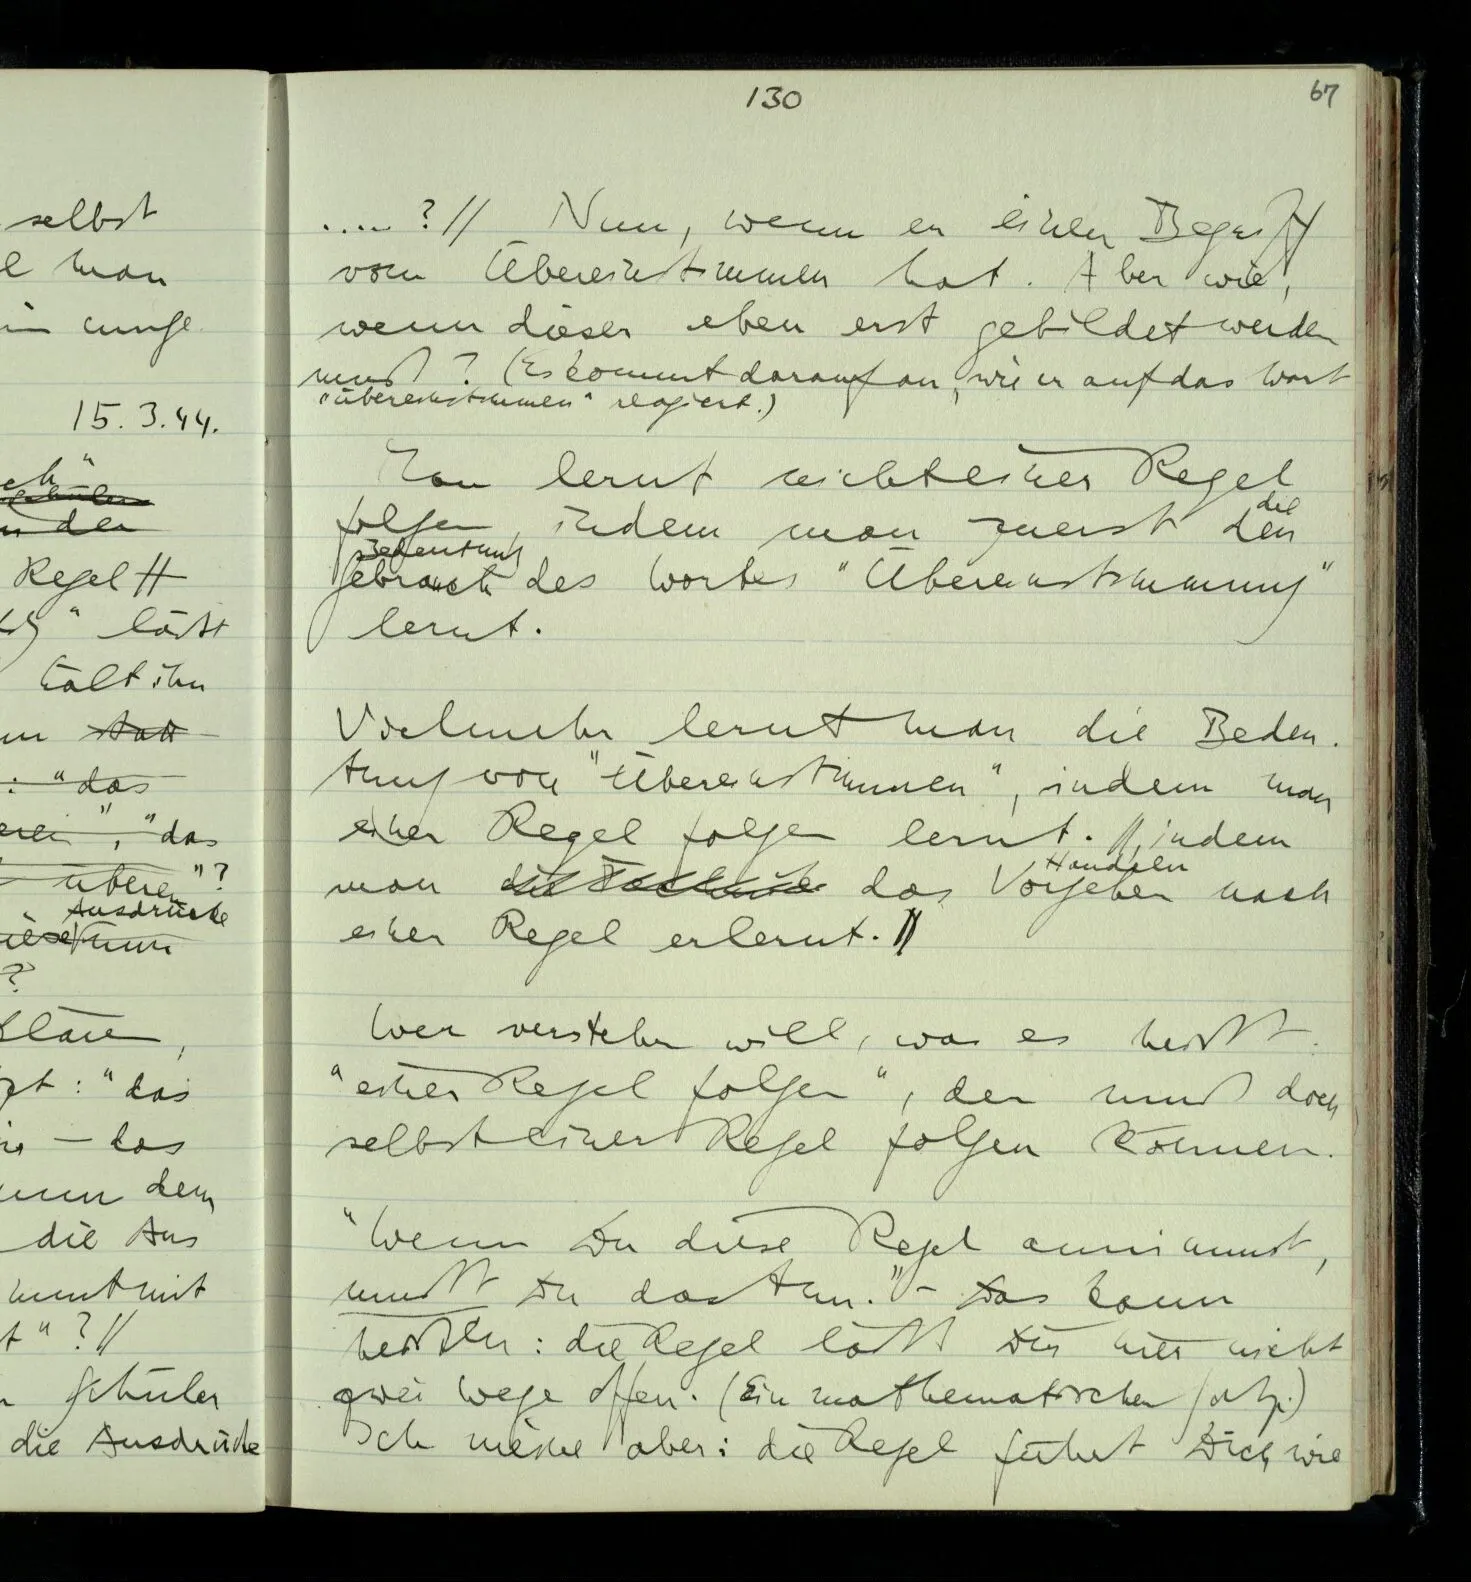 selbst
man
15. 3. 44.
den
Regel //
läßt
hält ihn
: "das
", "das
überein"?
Ausdrücke
?
: "das
– das
dem
die Aus
mit
t" ? //
Schüler
die Ausdrücke
130
67
.... ? // Nun, wenn er einen Begriff
vom Übereinstimmen hat. Aber wie,
wenn dieser eben erst gebildet werden
muß? (Es kommt darauf an, wie er auf das Wort
"übereinstimmen" reagiert.)
Man lernt nicht einer Regel
die
folgen, indem man zuerst den
Bedeutung
Gebrauch des Wortes "Übereinstimmung"
lernt.
Vielmehr lernt man die Bedeu-
tung von "Übereinstimmen", indem man
einer Regel folgen lernt. //, indem
Handeln
man die Technik das Vorgehen nach
einer Regel erlernt. //
Wer verstehen will, was es heißt:
"einer Regel folgen", der muß doch
selbst einer Regel folgen können.
"Wenn Du diese Regel annimmst,
mußt Du das tun." – Das kann
heißen: die Regel läßt Dir hier nicht
zwei Wege offen. (Ein mathematischer Satz.)
Ich meine aber: die Regel führt Dich wie